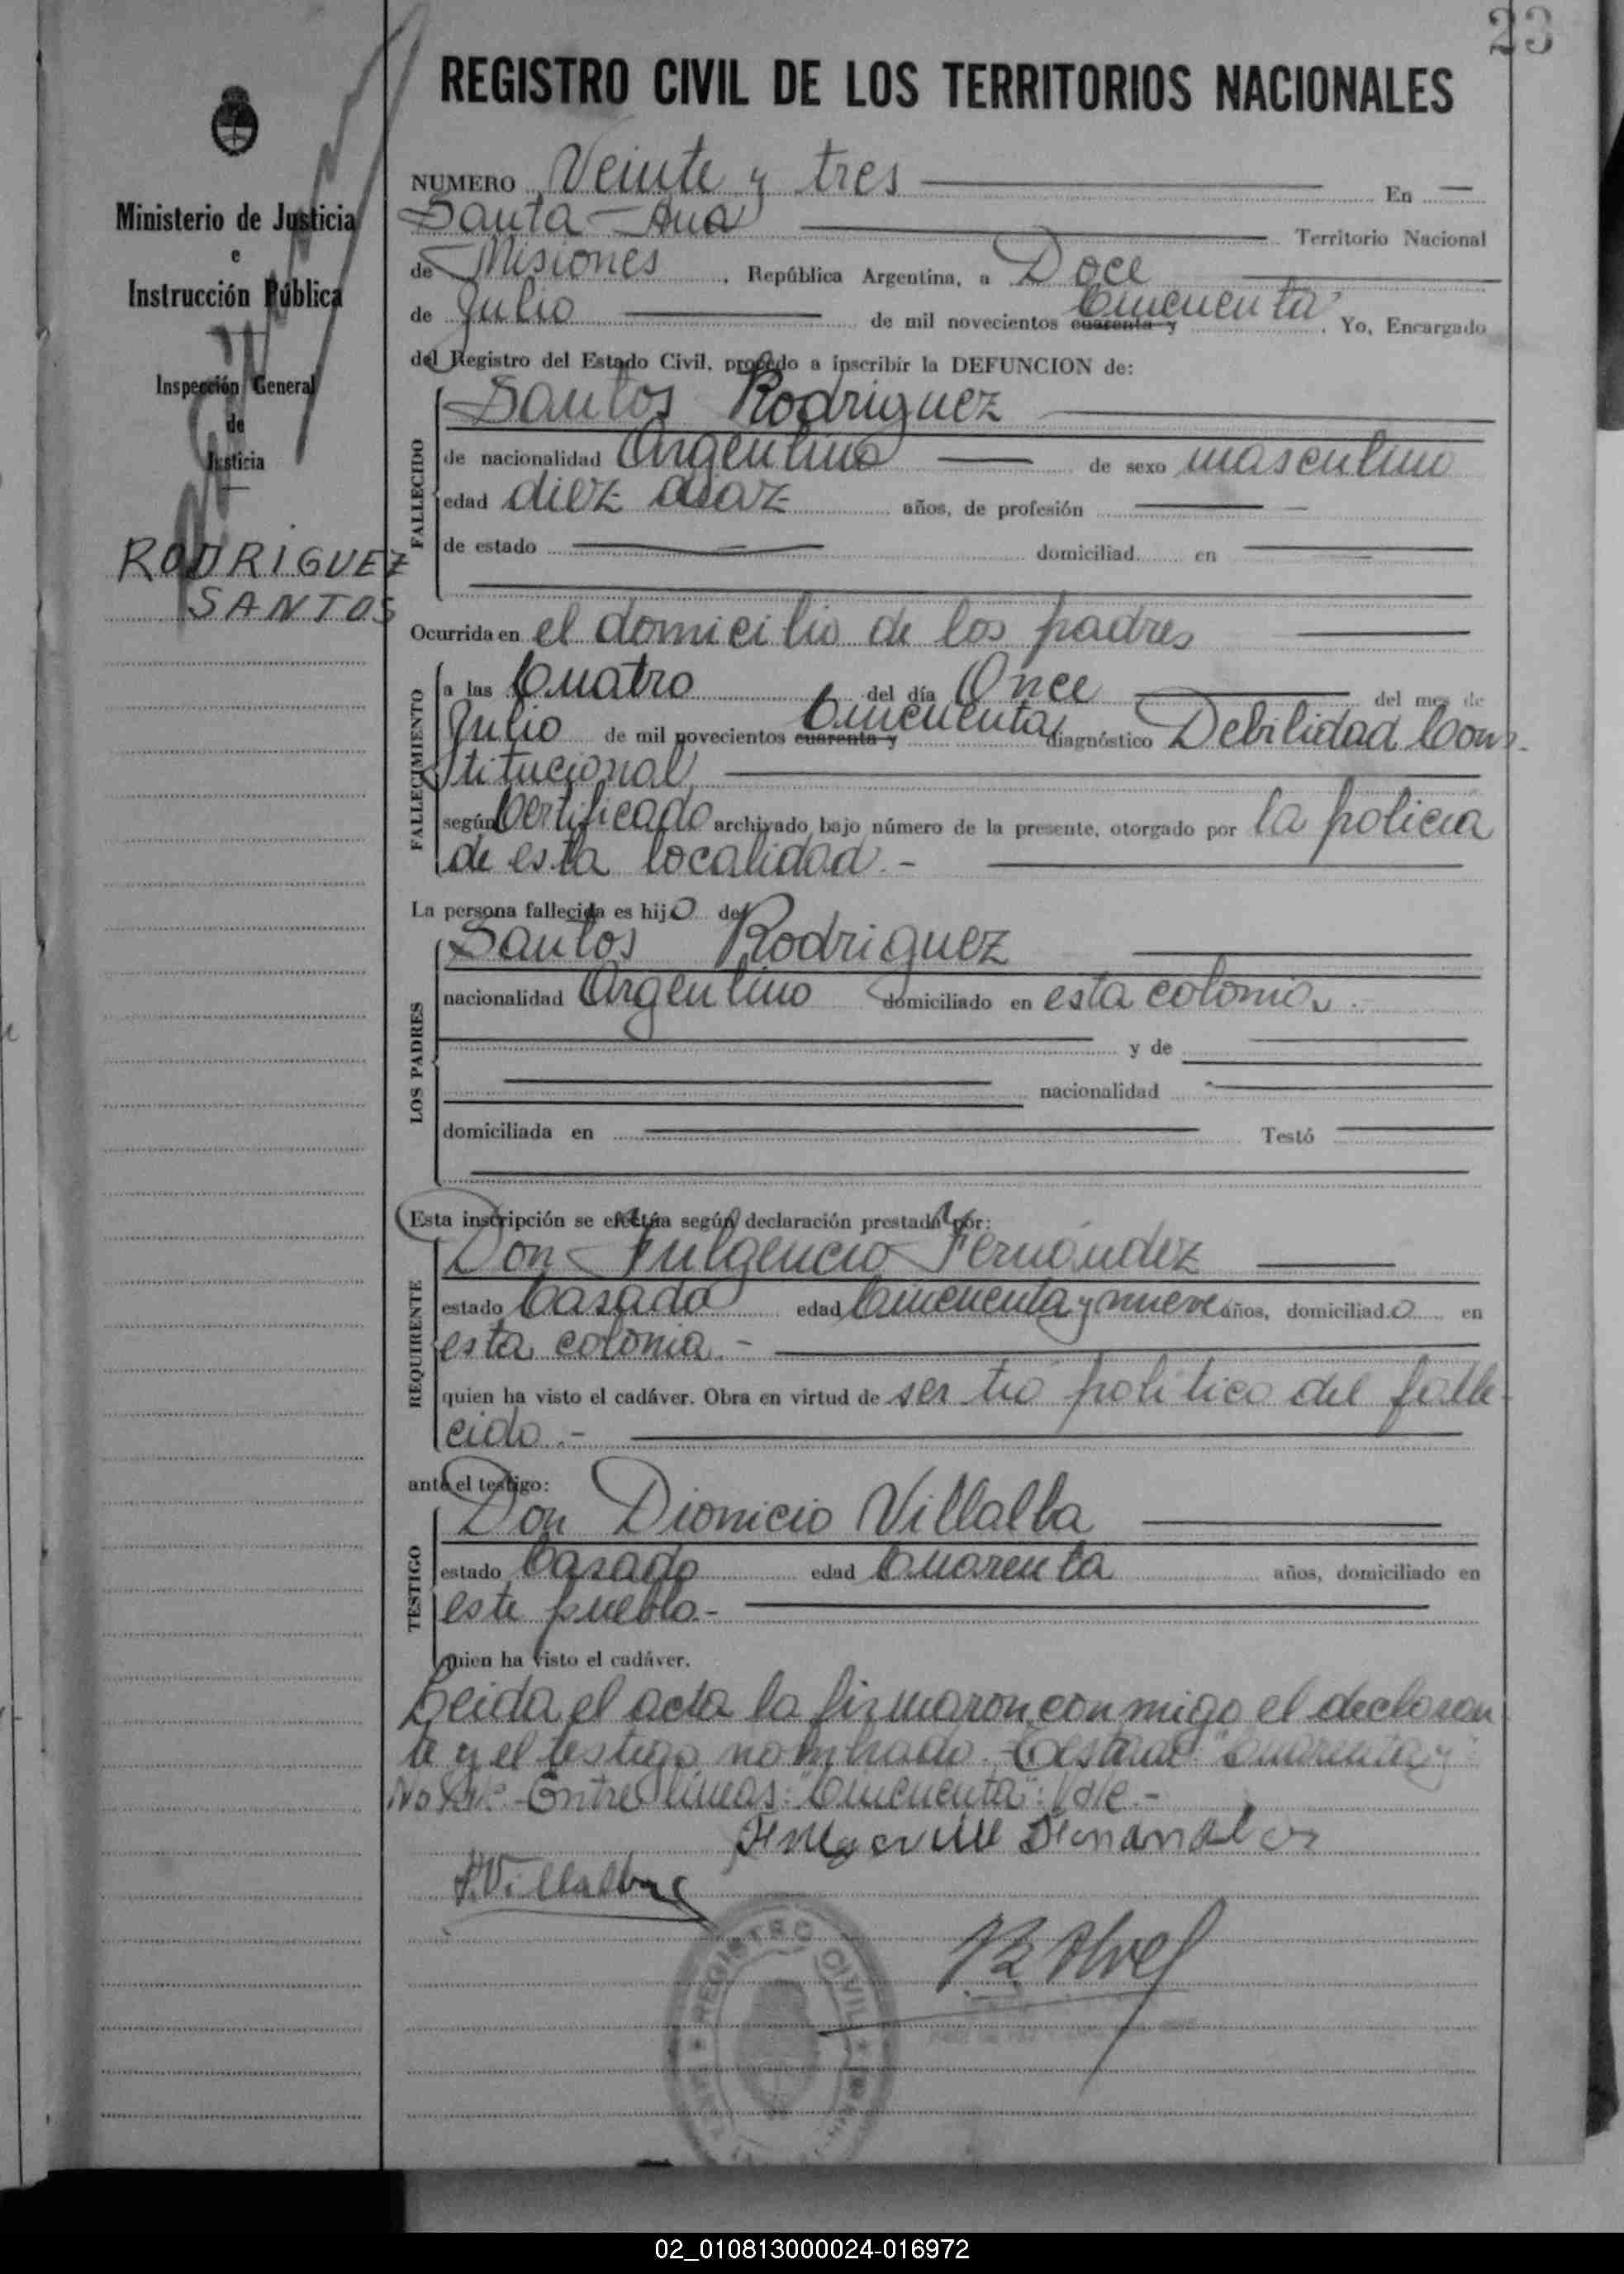 23
REGISTRO CIVIL DE LOS TERRITORIOS NACIONALES
Ministerio de Justicia
e
Instrucción Pública
Inspección General
de
Justicia
RODRIGUEZ
SANTOS
NUMERO Veinte y tres En
Santa Ana Territorio Nacional
de Misiones, República Argentina, a Doce
de Julio de mil novecientos cuarenta y Cincuenta, Yo, Encargado
del Registro del Estado Civil, procedo a inscribir la DEFUNCION de:
FALLECIDO
Santos Rodriguez
de nacionalidad Argentino de sexo masculino
edad diez diaz años, de profesión
de estado domiciliad en
Ocurrida en el domicilio de los padres
FALLECIMIENTO
a las Cuatro del día Once del mes de
Julio de mil novecientos cuarenta y Cincuenta diagnóstico Debilidad Cons-
titucional
según Certificado archivado bajo número de la presente, otorgado por la policia
de esta localidad.-
La persona fallecida es hijo de
LOS PADRES
Santos Rodriguez
nacionalidad Argentino domiciliado en esta colonia
y de
nacionalidad
domiciliada en Testó
Esta inscripción se efectúa según declaración prestada por:
REQUIRENTE
Don Fulgencio Fernandez
estado Casado edad Cincuenta y nueve años, domiciliado en
esta colonia.-
quien ha visto el cadáver. Obra en virtud de ser tio politico del falle-
cido.-
ante el testigo:
TESTIGO
Don Dionicio Villalba
estado Casado edad Cuarenta años, domiciliado en
este pueblo-
quien ha visto el cadáver.
Leida el acta la firmaron conmigo el declaran
te y el testigo nombrado. Testado "Cuarenta y"
No Vale- Entre lineas: "Cincuenta": Vale.-
D. Villalba
REGISTRO CIVIL
02_010813000024-016972